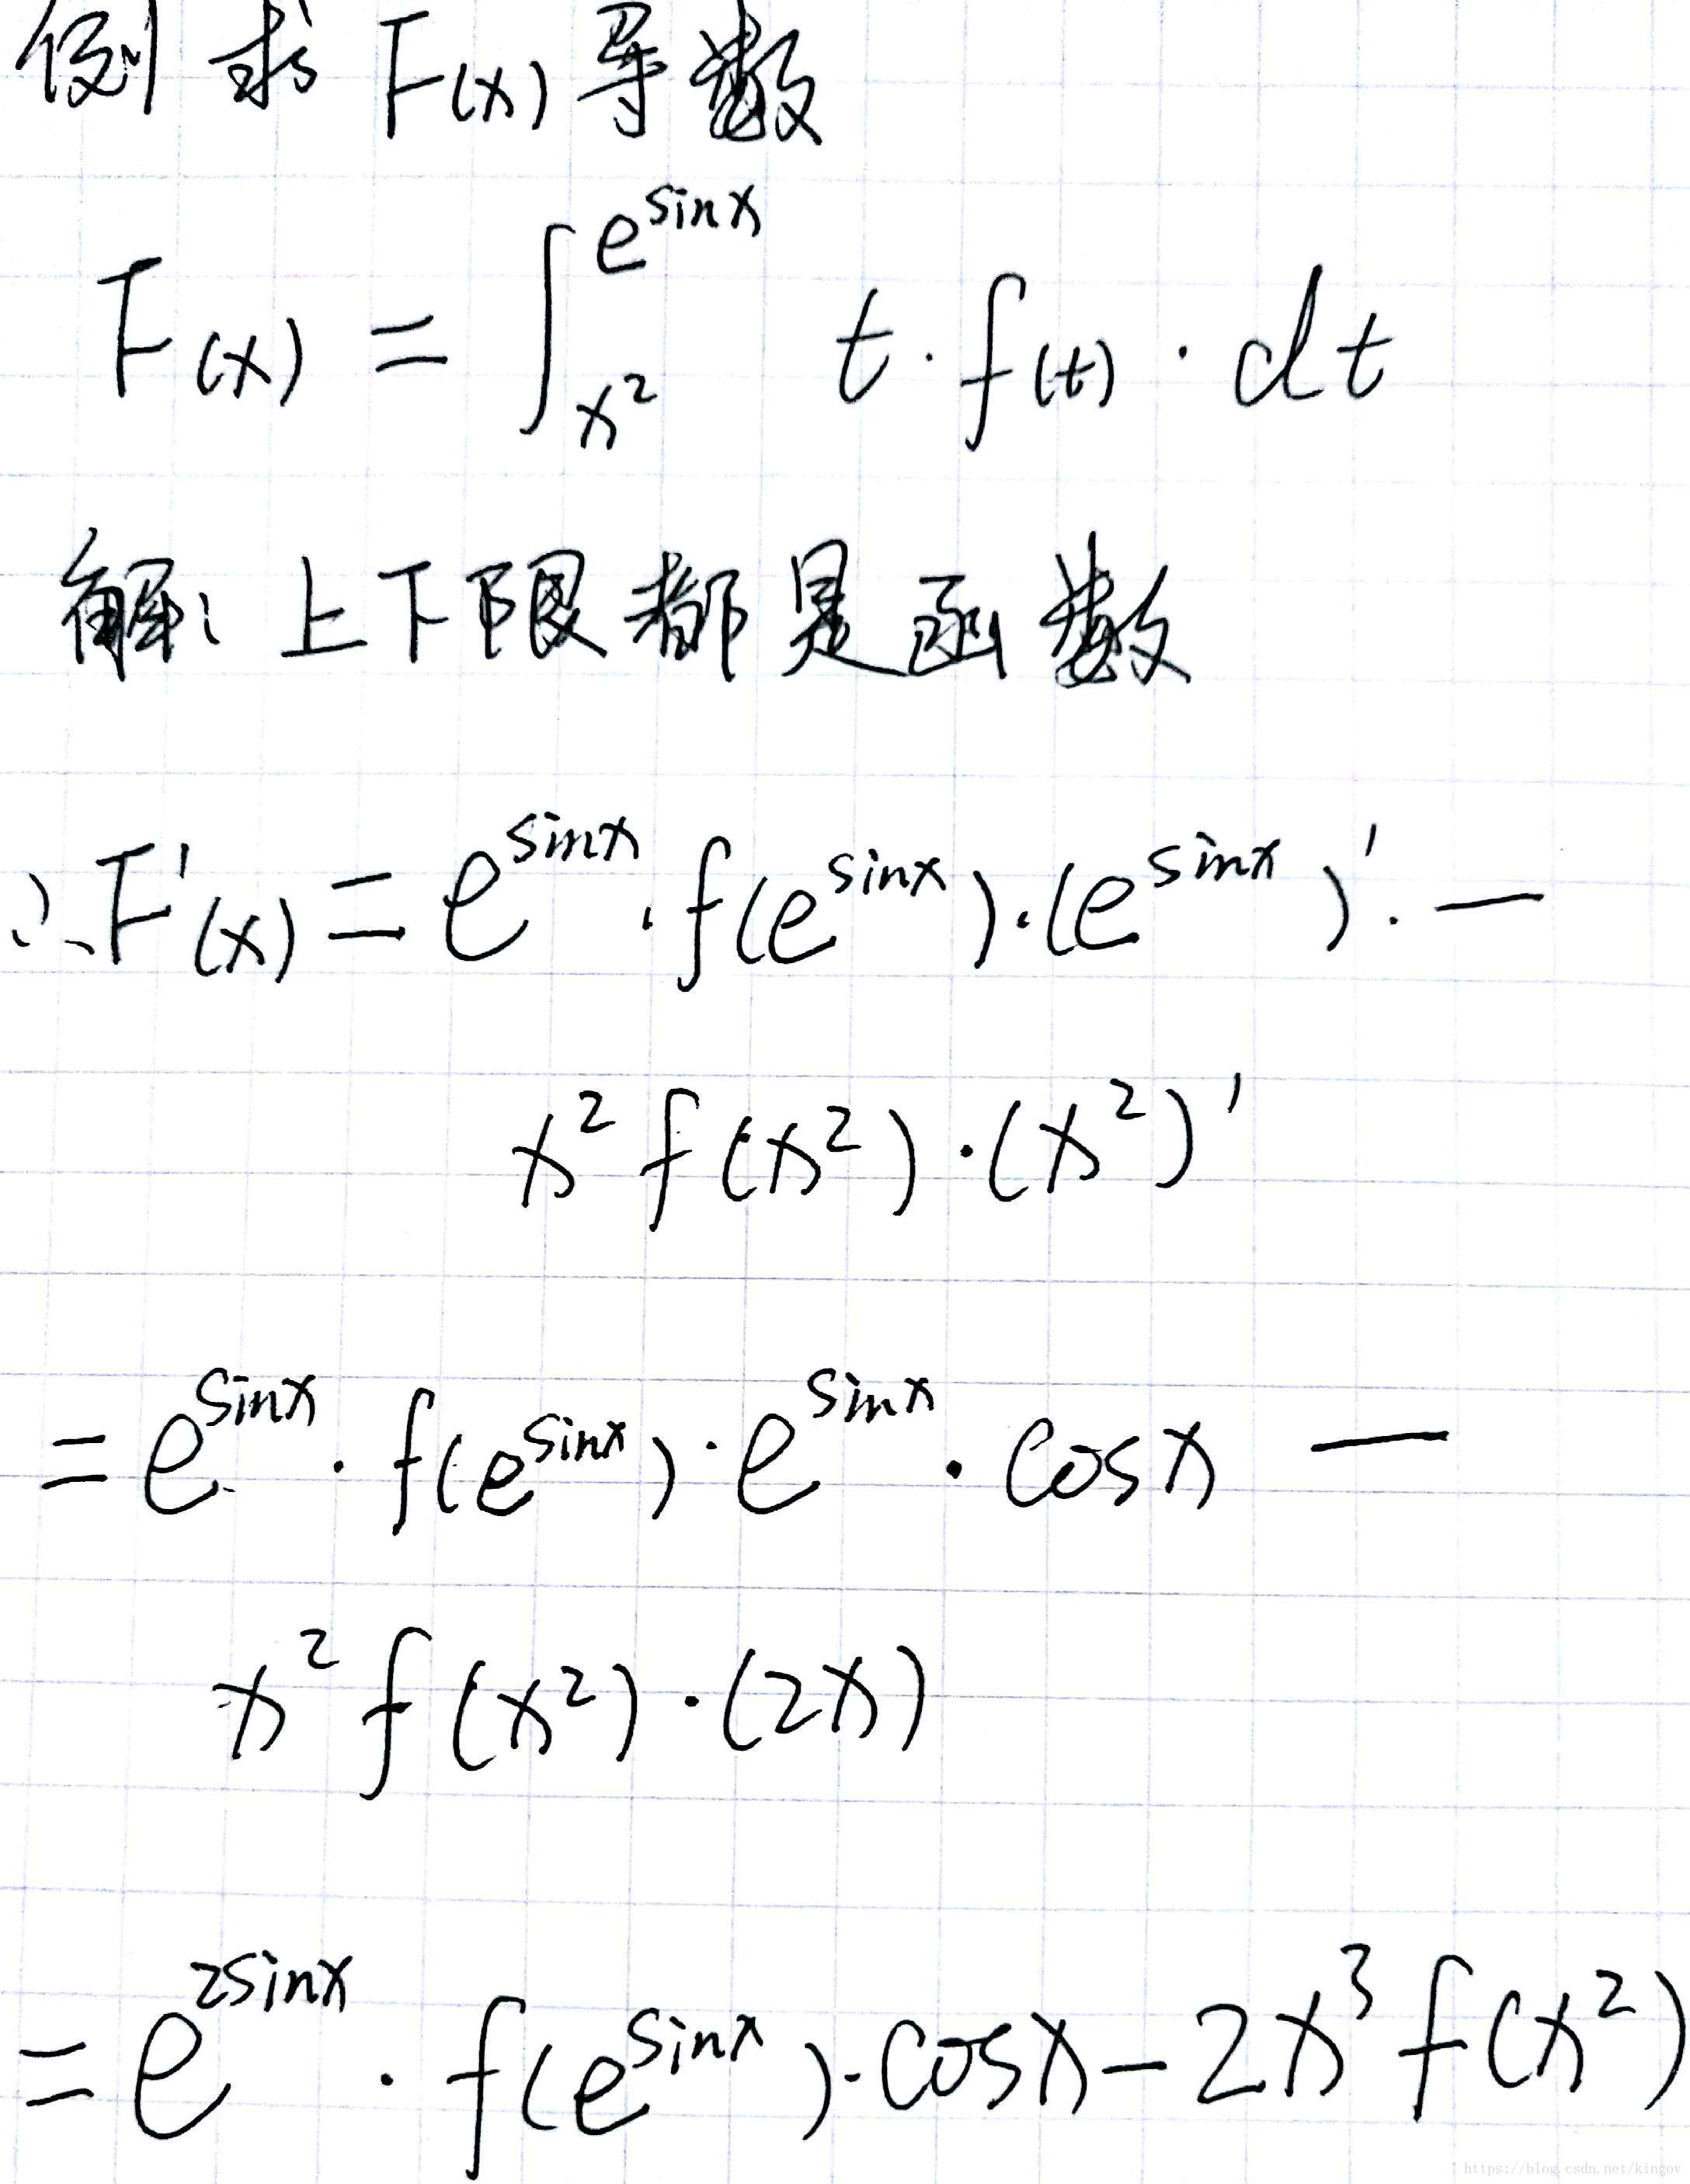 例 求 F(x) 导数
F(x) = ∫_{x²}^{e^{sinx}} t·f(t)·dt
解: 上下限都是函数
∴F'(x) = e^{sinx}·f(e^{sinx})·(e^{sinx})'·—
x² f(x²)·(x²)'
= e^{sinx}·f(e^{sinx})·e^{sinx}·cosx —
x² f(x²)·(2x)
= e^{2sinx}·f(e^{sinx})·cosx-2x³f(x²)
https://blog.csdn.net/kingov